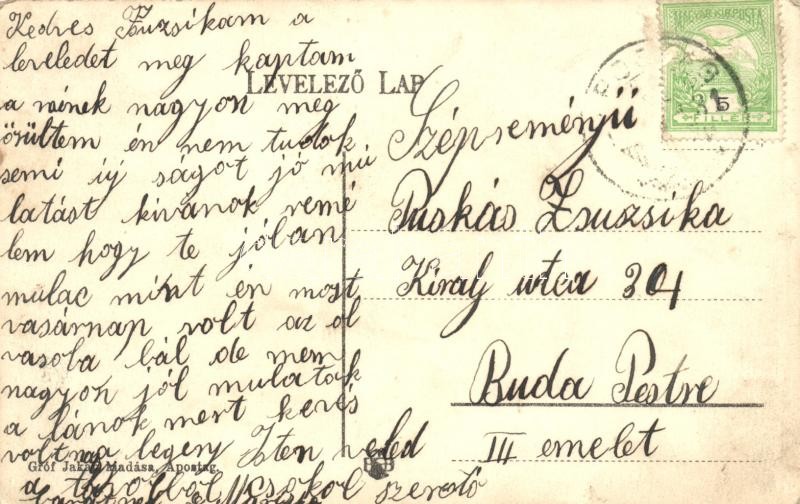 Kedves Zsuzsikam a
leveledet meg kaptam
a minek nagyon meg
örültem én nem tudok
semi új ságot jó mú
latást kivánok remé
lem hogy te jólan
mulac mint én most
vasárnap volt az ol
vasoba bál de nem
nagyon jól mulatok
a lánok mert keves
volt a legeny Isten veled
a távolból csokol szerető
LEVELEZŐ LAP
MAGYAR KIR. POSTA
5
FILLÉR
Szépreményü
Puskás Zsuzsika
Király utca 304
Buda Pestre
III emelet
Gróf Jakab kiadása, Apostag.